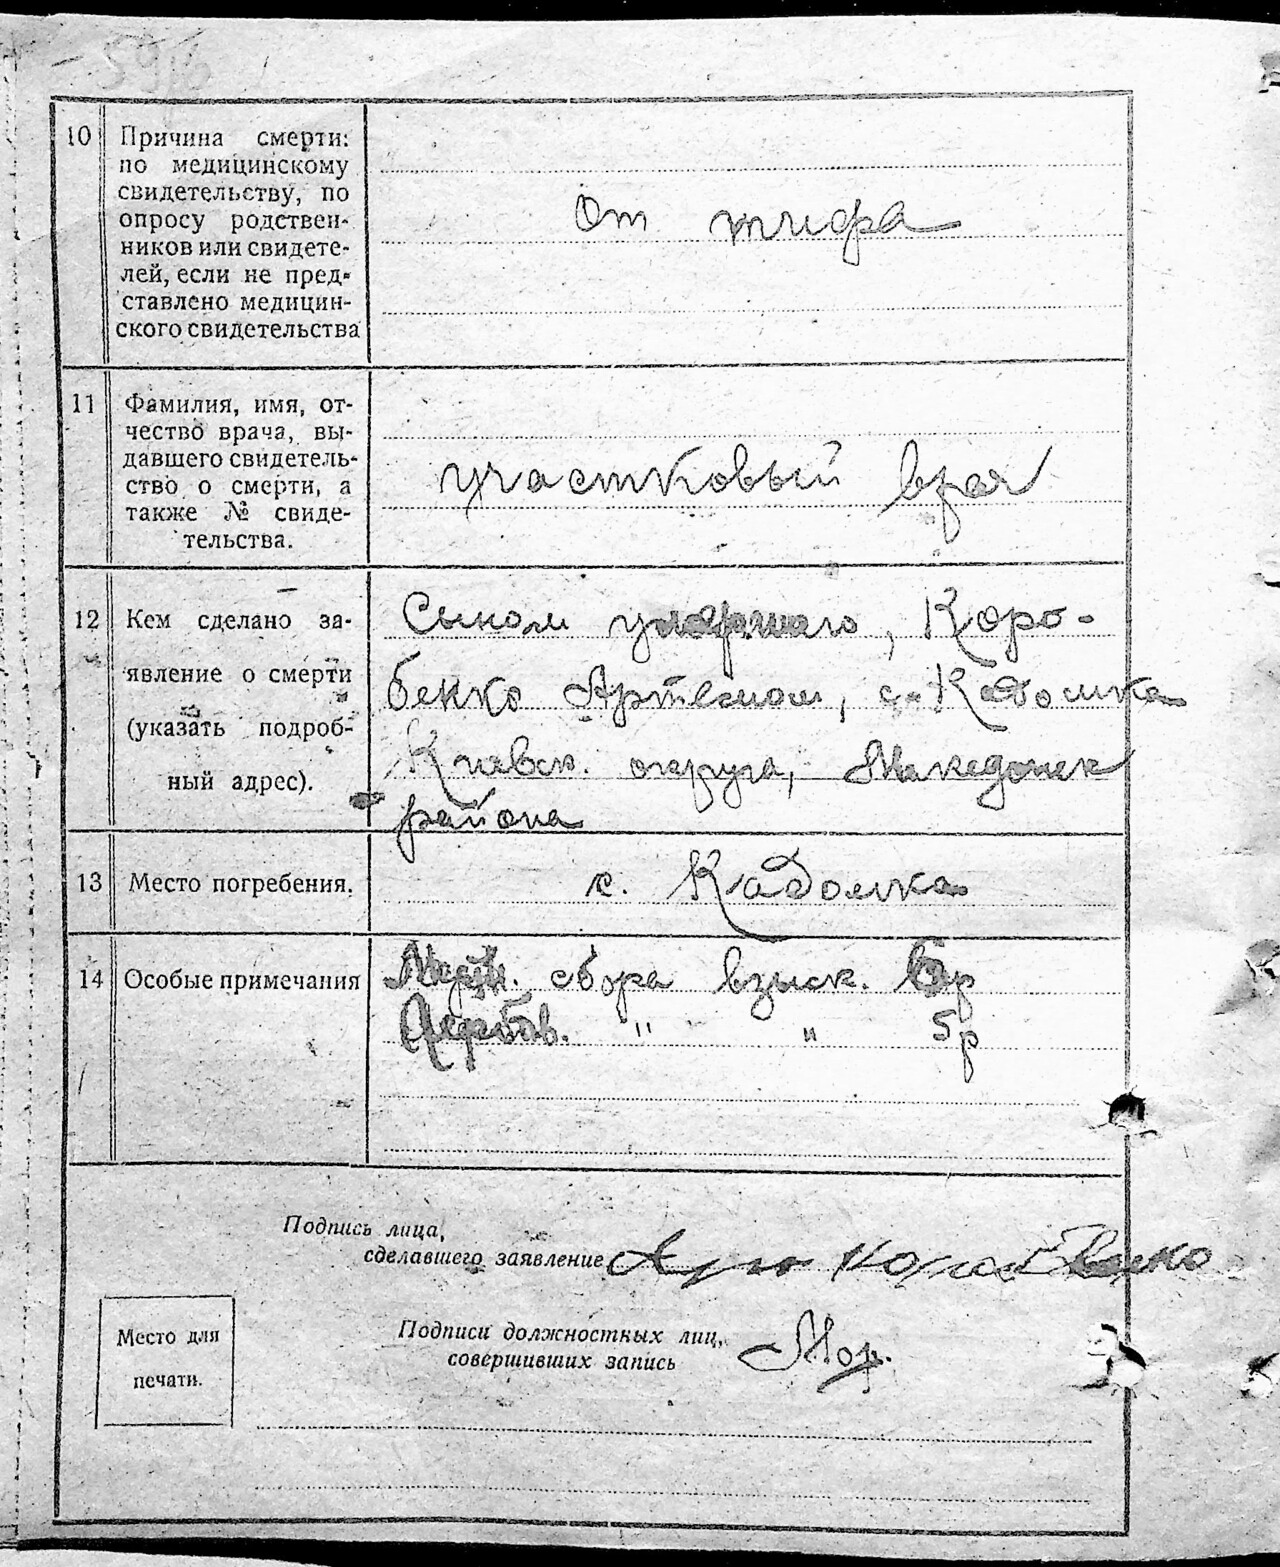 10 Причина смерти:
по медицинскому
свидетельству, по
опросу родствен-
ников или свидете-
лей, если не пред-
ставлено медицин-
ского свидетельства
От тифа
11 Фамилия, имя, от-
чество врача, вы-
давшего свидетель-
ство о смерти, а
также № свиде-
тельства.
участковый врач
12 Кем сделано за-
явление о смерти
(указать подроб-
ный адрес).
Сыном умершего, Коро-
бенко Артемом, с. Кадомка
Киевск. округа, Македонск
района
13 Место погребения.
с. Кадомка
14 Особые примечания
сбора взыск.
" " 5р
Подпись лица,
сделавшего заявление
Подписи должностных лиц,
совершивших запись
Место для
печати.